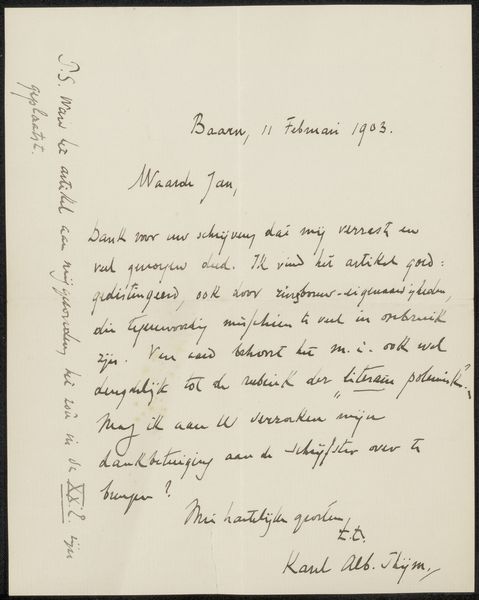 Baarn, 11 Februari 1903.
Waarde Jan,
Dank voor uw schrijven dat mij verrast en
veel genoegen deed. Ik vind het artikel goed:
gedistingeerd, ook door zinsbouw-eigenaardigheden,
die tegenwoordig misschien te veel in onbruik
zijn. Van aard behoort het m.i. ook wel
degelijk tot de rubriek der "literaire polemiek".
Mag ik aan U verzoeken mijn
dankbetuiging aan de schrijfster over te
brengen?
Met hartelijke groeten,
t.t.
Karel Alb. Thijm.
P.S. Ware het artikel aan mij gezonden, het zou in de XXe E. zijn
geplaatst.